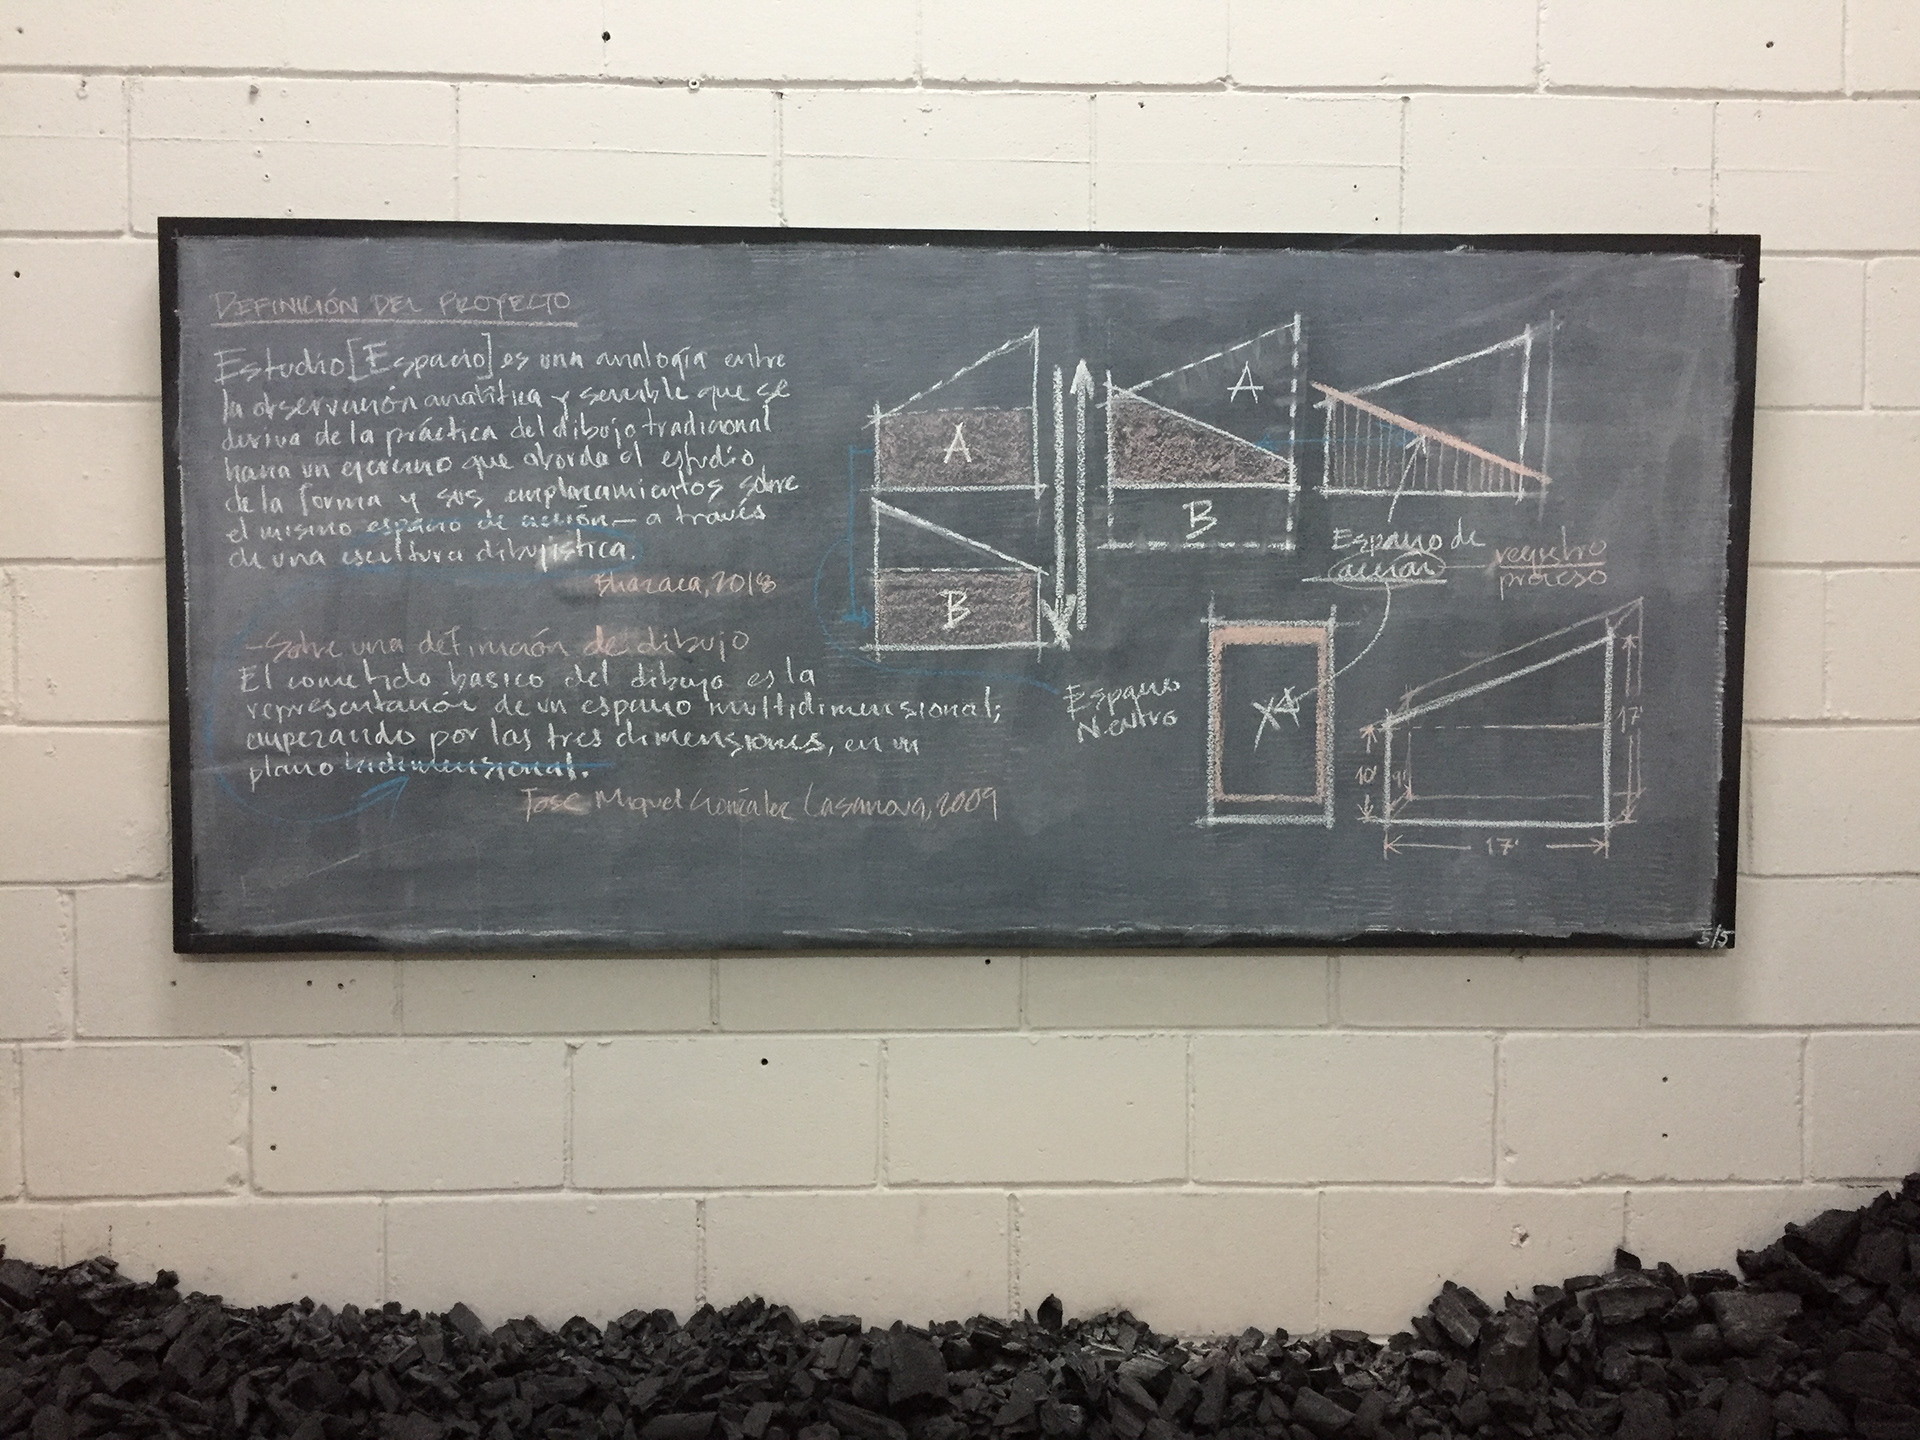 DEFINICIÓN DEL PROYECTO
Estudio [Espacio] es una analogía entre
la observación analítica y sensible que se
deriva de la práctica del dibujo tradicional
hacia un ejercicio que aborda el estudio
de la forma y sus emplazamientos sobre
el mismo espacio de acción — a través
de una escritura dibujística.
2018
- Sobre una definición de dibujo
El cometido basico del dibujo es la
representación de un espacio multidimensional;
empezando por las tres dimensiones, en un
plano bidimensional.
Jose Miguel González Casanova, 2009
A
B
A
B
Espacio de
acción
registro
proceso
Espacio
Neutro
X
10'
9'
17'
17'
5/5